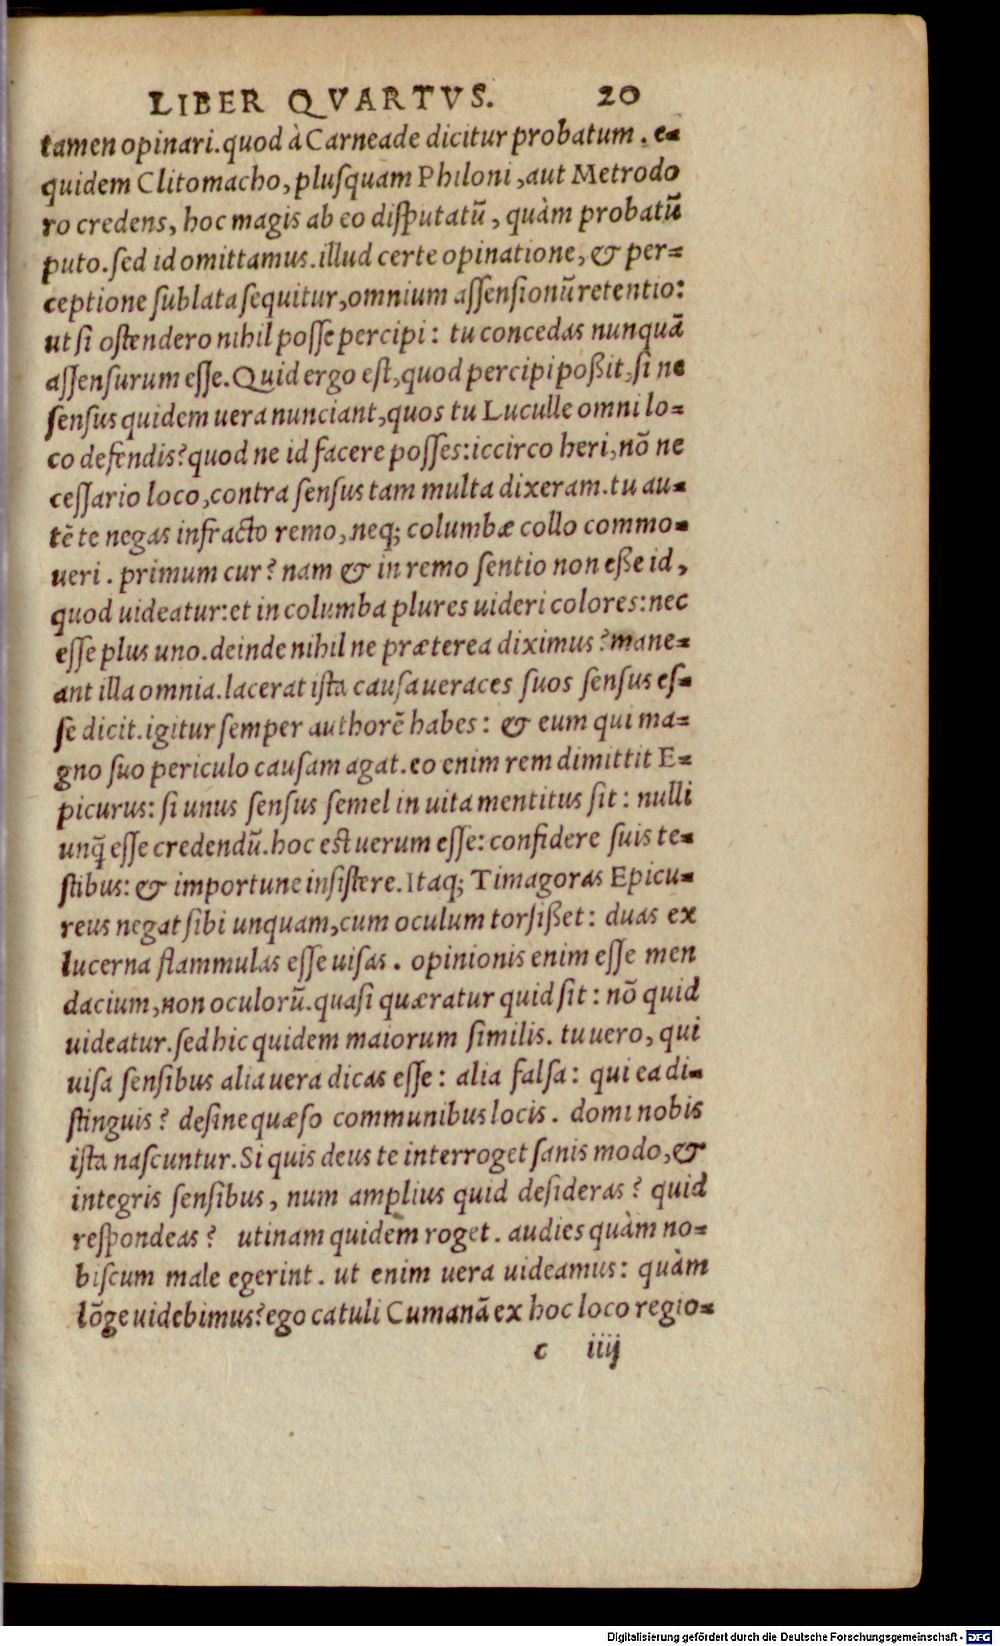 LIBER QVARTVS. 20
tamen opinari. quod à Carneade dicitur probatum. e-
quidem Clitomacho, plusquam Philoni, aut Metrodo
ro credens, hoc magis ab eo disputatũ, quàm probatũ
puto. sed id omittamus. illud certe opinatione, & per-
ceptione sublata sequitur, omnium assensionũ retentio:
ut si ostendero nihil posse percipi: tu concedas nunquã
assensurum esse. Quid ergo est, quod percipi poßit, si ne
sensus quidem uera nunciant, quos tu Luculle omni lo-
co defendis? quod ne id facere posses: iccirco heri, nõ ne
cessario loco, contra sensus tam multa dixeram. tu au-
tẽ te negas infracto remo, neq; columbæ collo commo-
ueri. primum cur? nam & in remo sentio non eße id,
quod uideatur: et in columba plures uideri colores: nec
esse plus uno. deinde nihil ne præterea diximus? mane-
ant illa omnia. lacerat ista causa ueraces suos sensus es-
se dicit. igitur semper authorẽ habes: & eum qui ma-
gno suo periculo causam agat. eo enim rem dimittit E-
picurus: si unus sensus semel in uita mentitus sit: nulli
unq̃ esse credendũ. hoc est uerum esse: confidere suis te-
stibus: & importune insistere. Itaq; Timagoras Epicu-
reus negat sibi unquam, cum oculum torsißet: duas ex
lucerna flammulas esse uisas. opinionis enim esse men
dacium, non oculorũ. quasi quæratur quid sit: nõ quid
uideatur. sed hic quidem maiorum similis. tu uero, qui
uisa sensibus alia uera dicas esse: alia falsa: qui ea di-
stinguis? desine quæso communibus locis. domi nobis
ista nascuntur. Si quis deus te interroget sanis modo, &
integris sensibus, num amplius quid desideras? quid
respondeas? utinam quidem roget. audies quàm no-
biscum male egerint. ut enim uera uideamus: quàm
lõge uidebimus? ego catuli Cumanã ex hoc loco regio-
c iiij
Digitalisierung gefördert durch die Deutsche Forschungsgemeinschaft - DFG